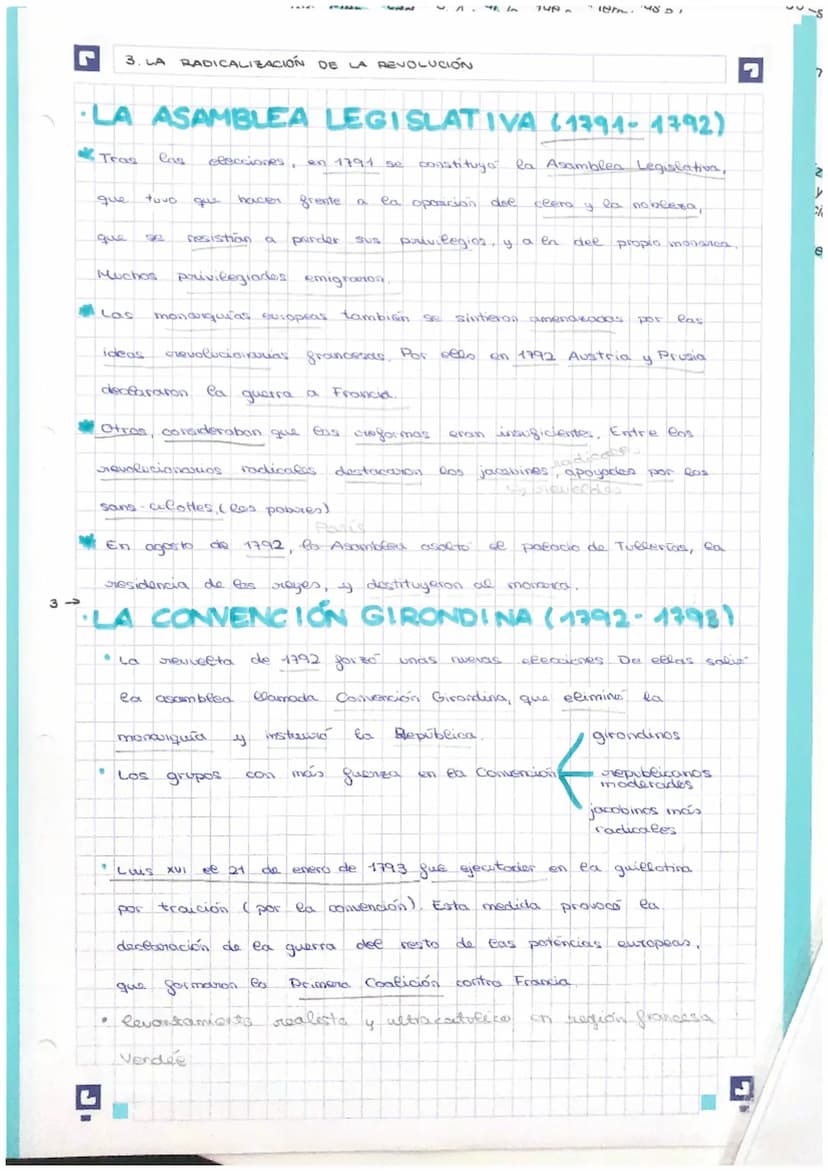 3. LA RADICALIZACIÓN DE LA REVOLUCIÓN
· LA ASAMBLEA LEGISLATIVA (1791-1792)
Tras las elecciones, en 1791 se constituyó la Asamblea Legislativa,
que tuvo que hacer frente a la oposición del clero y la nobleza,
que se resistían a perder sus privilegios, y a la del propio monarca.
Muchos privilegiados emigraron.
Las monarquías europeas también se sintieron amenazadas por las
ideas revolucionarias francesas. Por ello en 1792 Austria y Prusia
declararon la guerra a Francia.
Otros, consideraban que las reformas eran insuficientes. Entre los
radicales
revolucionarios radicales destacaron los jacobinos, apoyados por los
sans-culottes, (los pobres)
París
En agosto de 1792, la Asamblea asaltó el palacio de Tullerías, la
residencia de los reyes, y destituyeron al monarca.
3 → · LA CONVENCIÓN GIRONDINA (1792-1793)
• La revuelta de 1792 forzó unas nuevas elecciones De ellas salió
la asamblea llamada Convención Girondina, que eliminó la
monarquía y instauró la República.
girondinos
• Los grupos con más fuerza en la Convención
republicanos
moderados
jacobinos más
radicales
• Luis XVI el 21 de enero de 1793 fue ejecutador en la guillotina
por traición (por la convención). Esta medida provocó la
declaración de la guerra del resto de las potencias europeas,
que formaron la Primera Coalición contra Francia.
• levantamiento realista y ultracatolico en región francesa
Verdeé